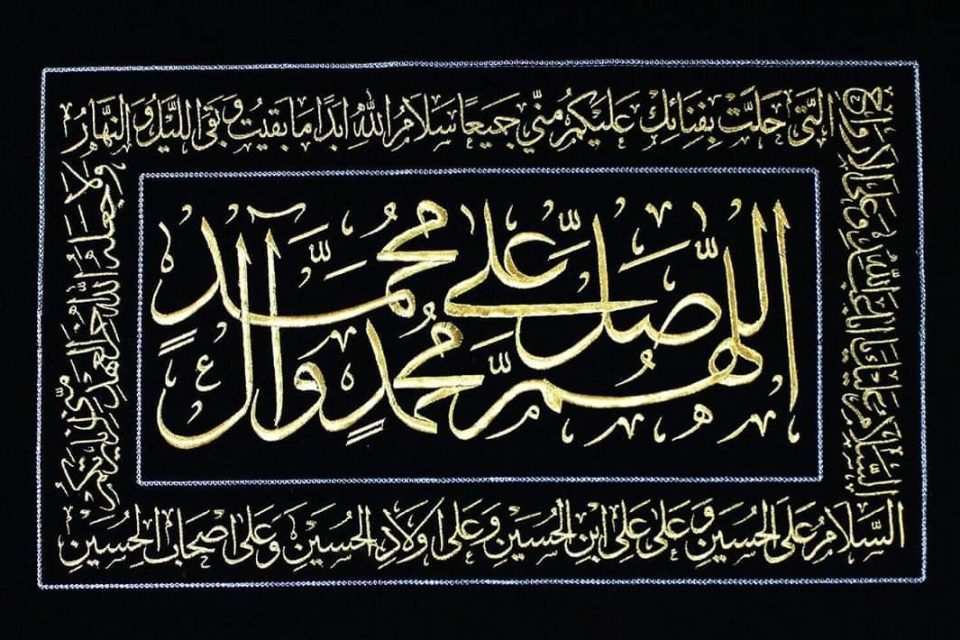 اللهم صل على محمد وآل محمد
السلام عليك يا ابا عبد الله و على الارواح
التي حلت بفنائك عليكم مني جميعا سلام الله ابدا ما بقيت و بقي الليل و النهار
ولا جعله الله اخر العهد مني لزيارتكم
السلام على الحسين و على على ابن الحسين و على اولاد الحسين و على اصحاب الحسين